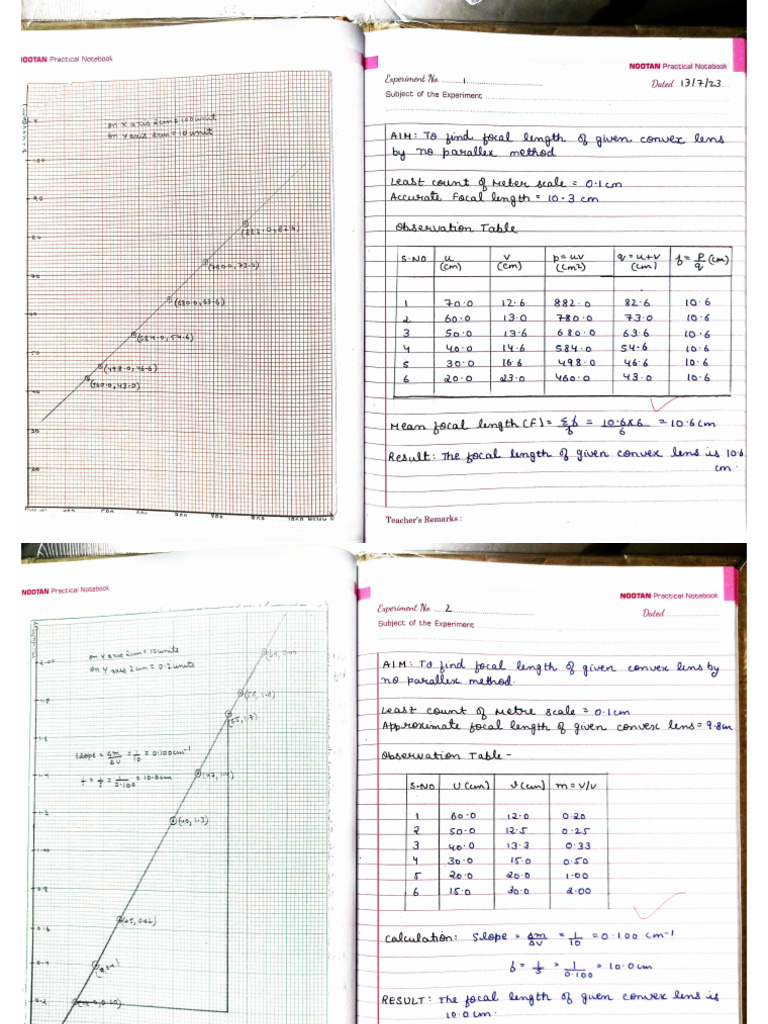 NOOTAN Practical Notebook
on X axis 2cm = 100 unit
on Y axis 2cm = 10 unit
100
90
80
70
60
50
40
30
20
(882.0, 82.6)
(780.0, 73.0)
(680.0, 63.6)
(584.0, 54.6)
(498.0, 46.6)
(460.0, 43.0)
NOOTAN Practical Notebook
Experiment No. 1
Dated 13/7/23
Subject of the Experiment
AIM: To find focal length of given convex lens
by no parallex method
Least count of Meter scale = 0.1 cm
Accurate Focal length = 10.3 cm
Observation Table
S.NO u (cm) v (cm) p=uv (cm2) q=u+v (cm) f= p/q (cm)
1 70.0 12.6 882.0 82.6 10.6
2 60.0 13.0 780.0 73.0 10.6
3 50.0 13.6 680.0 63.6 10.6
4 40.0 14.6 584.0 54.6 10.6
5 30.0 16.6 498.0 46.6 10.6
6 20.0 23.0 460.0 43.0 10.6
Mean focal length (F) = Σf/6 = 10.6x6/6 = 10.6 cm
Result: The focal length of given convex lens is 10.6
cm.
Teacher's Remarks :
NOOTAN Practical Notebook
on X axis 2cm = 10 units
on Y axis 2cm = 0.2 units
2.00
1.8
1.4
1.2
0.8
0.6
0.4
0.2
(58, 1.8)
(55, 1.7)
(47, 1.4)
(40, 1.3)
(25, 0.62)
Slope = Δm/ΔV = 1/10 = 0.100 cm-1
= 1/0.100 = 10.0 cm
NOOTAN Practical Notebook
Experiment No. 2
Dated
Subject of the Experiment
AIM: To find focal length of given convex lens by
no parallex method.
Least count of Metre scale = 0.1cm
Approximate focal length of given convex lens = 9.8cm
Observation Table -
S.NO U (cm) V (cm) m = V/U
1 60.0 12.0 0.20
2 50.0 12.5 0.25
3 40.0 13.3 0.33
4 30.0 15.0 0.50
5 20.0 20.0 1.00
6 15.0 30.0 2.00
Calculation: Slope = Δm/ΔV = 1/10 = 0.100 cm-1
f = 1/s = 1/0.100 = 10.0cm
RESULT: The focal length of given convex lens is
10.0 cm.